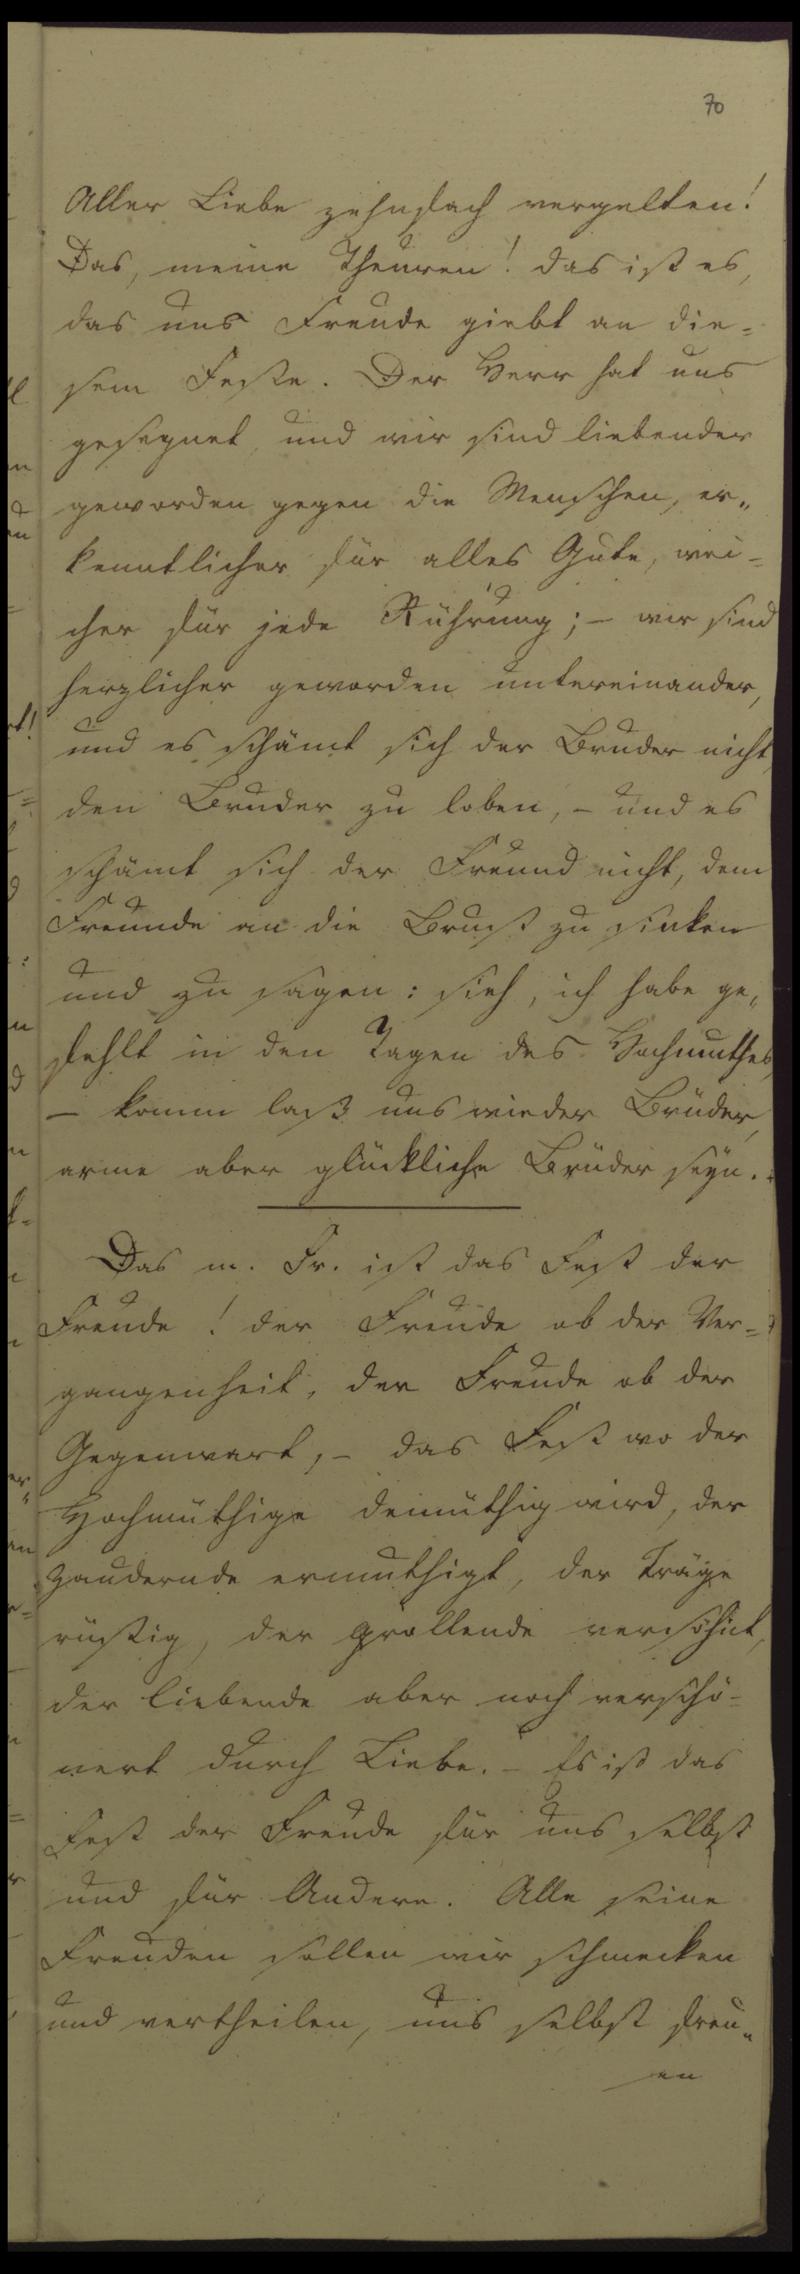 70
Aller Liebe zehnfach vergelten!
Das, meine Theuren! das ist es,
das uns Freude giebt an die=
sem Feste. Der Herr hat uns
gesegnet, und wir sind liebender
geworden gegen die Menschen, er„
kenntlicher für alles Gute, wei=
cher für jede Rührung; – wir sind
herzlicher geworden untereinander,
und es schämt sich der Bruder nicht,
den Bruder zu loben, – und es
schämt sich der Freund nicht, dem
Freunde an die Brust zu sinken
und zu sagen: sieh, ich habe ge„
fehlt in den Tagen des Hochmuthes,
– komm laß uns wieder Brüder,
arme aber glückliche Brüder seyn.
Das m. Fr. ist das Fest der
Freude! der Freude ob der Ver=
gangenheit, der Freude ob der
Gegenwart, – das Fest wo der
Hochmüthige demüthig wird, der
Zaudernde ermuthigt, der Träge
rüstig, der grollende versöhnt,
der liebende aber noch verschö=
nert durch Liebe. – Es ist das
Fest der Freude für uns selbst
und für Andere. Alle seine
Freuden sollen wir schmecken
und vertheilen, uns selbst freu„
en